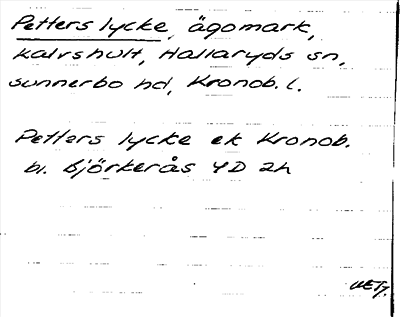 Petters lycke, ägomark,
Kalvshult, Hallaryds sn,
Sunnerbo hd, Kronob. l.
Petters lycke ek Kronob.
bl. Björkerås 4D 2h